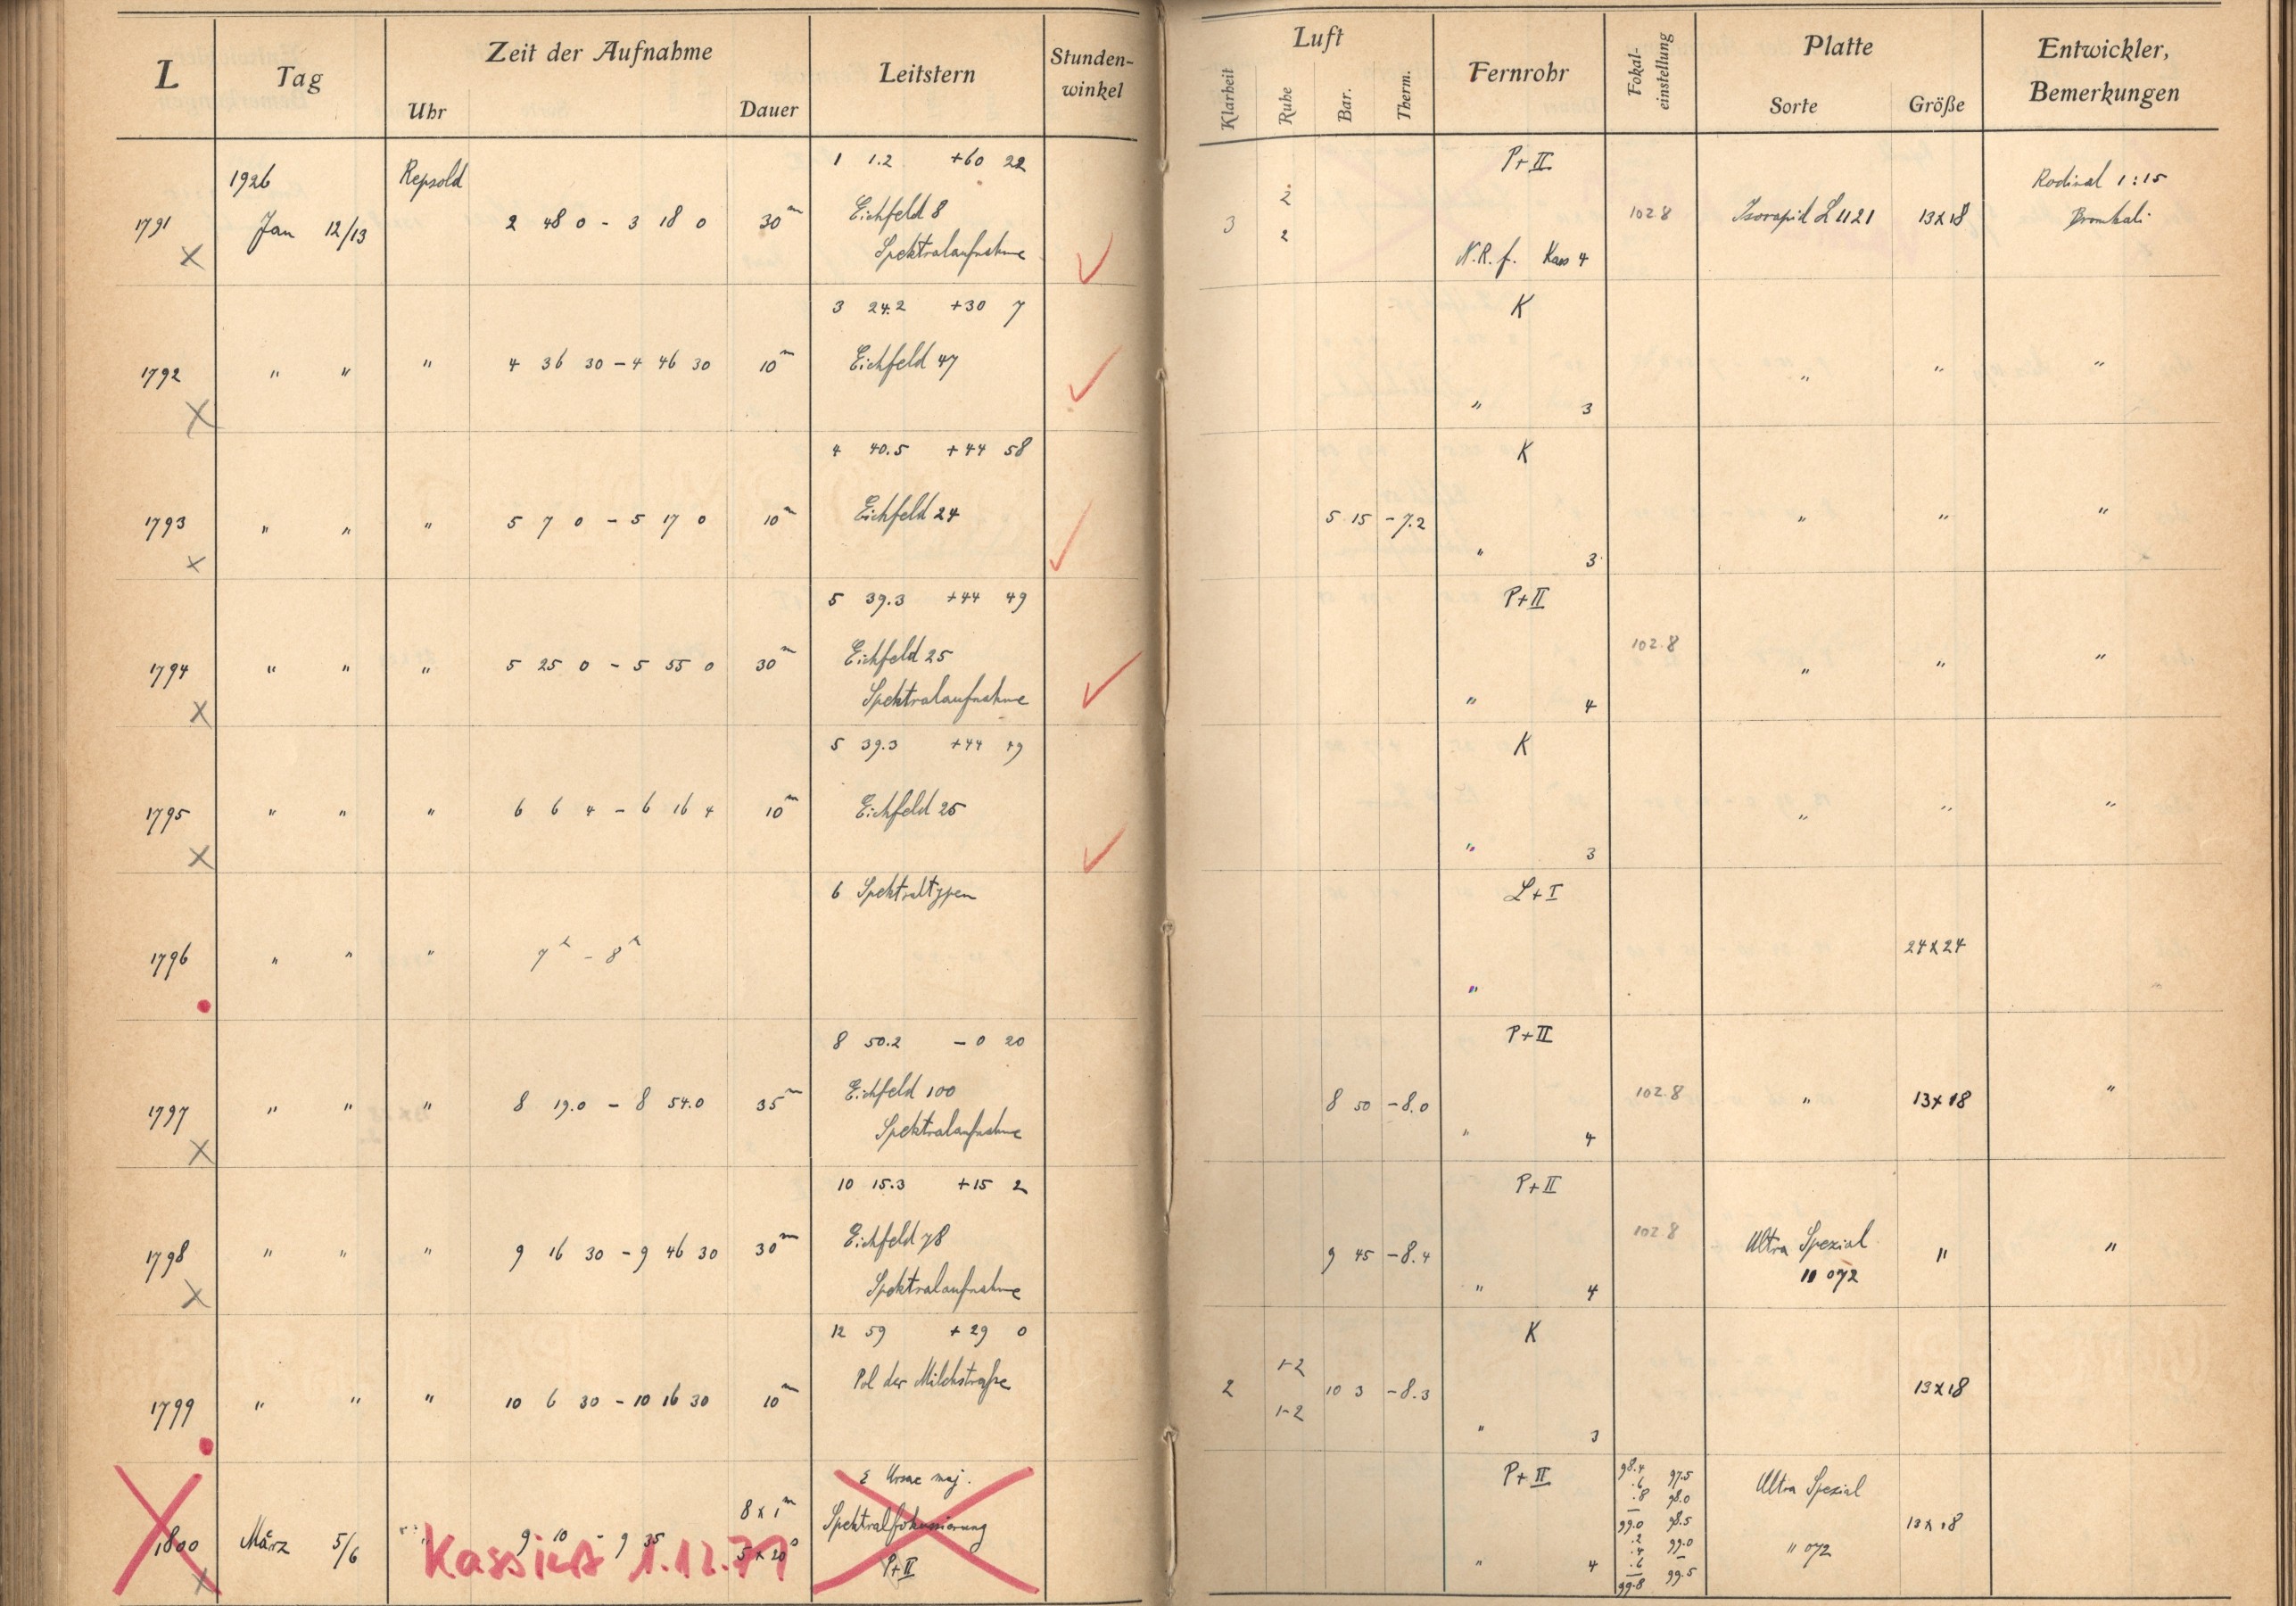 L Tag Zeit der Aufnahme Leitstern Stunden-winkel Luft Fernrohr Fokal-einstellung Platte Entwickler, Bemerkungen
Uhr Dauer Klarheit Ruhe Bar. Therm. Sorte Größe
1926 Repsold 1 1.2 +60 22 P+II Rodinal 1:15
1791 Jan 12/13 2 48 0 - 3 18 0 30m Eichfeld 8 3 2 102.8 Isorapid L 1121 13x18 Bromkali
X Spektralaufnahme 2 N.R.f. Kass 4
3 24.2 +30 7 K
1792 " " " 4 36 30 - 4 46 30 10m Eichfeld 47 " " "
X " 3
4 40.5 +44 58 K
1793 " " " 5 7 0 - 5 17 0 10m Eichfeld 24 5 15 -7.2 " " "
X " 3
5 39.3 +44 49 P+II
1794 " " " 5 25 0 - 5 55 0 30m Eichfeld 25 102.8 " " "
X Spektralaufnahme " 4
5 39.3 +44 49 K
1795 " " " 6 6 4 - 6 16 4 10m Eichfeld 25 " " "
X " 3
6 Spektraltypen L+I
1796 " " " 7h - 8h 24x24
"
8 50.2 - 0 20 P+II
1797 " " " 8 19.0 - 8 54.0 35m Eichfeld 100 8 50 -8.0 102.8 " 13x18 "
X Spektralaufnahme " 4
10 15.3 +15 2 P+II
1798 " " " 9 16 30 - 9 46 30 30m Eichfeld 78 9 45 -8.4 102.8 Ultra Spezial " "
X Spektralaufnahme " 4 10 072
12 59 +29 0 K
1799 " " " 10 6 30 - 10 16 30 10m Pol der Milchstraße 2 1-2 10 3 -8.3 13x18
1-2 " 3
ε Ursae maj. P+II 98.4 97.5 Ultra Spezial
8x1m .6
.8 98.0
1800 März 5/6 " 9 10 - 9 35 5x20s Spektralfokussierung 99.0 98.5 13x18
.2 99.0
X P+II " 4 .4 " 072
.6
99.8 99.5
Kassiert 1.12.71